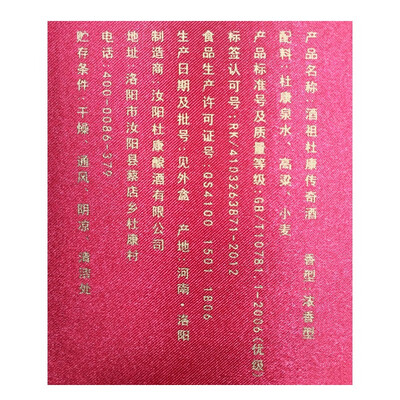 产品名称：酒祖杜康传奇酒 香型：浓香型
配料：杜康泉水、高粱、小麦
产品标准号及质量等级：GB/T10781.1-2006(优级)
标签认可号：RK/4103263871-2012
食品生产许可证号：QS4100 1501 1806
生产日期及批号：见外盒 产地：河南·洛阳
制造商：汝阳杜康酿酒有限公司
地址：洛阳市汝阳县蔡店乡杜康村
电话：400-0086-379
贮存条件：干燥、通风、阴凉、清洁处